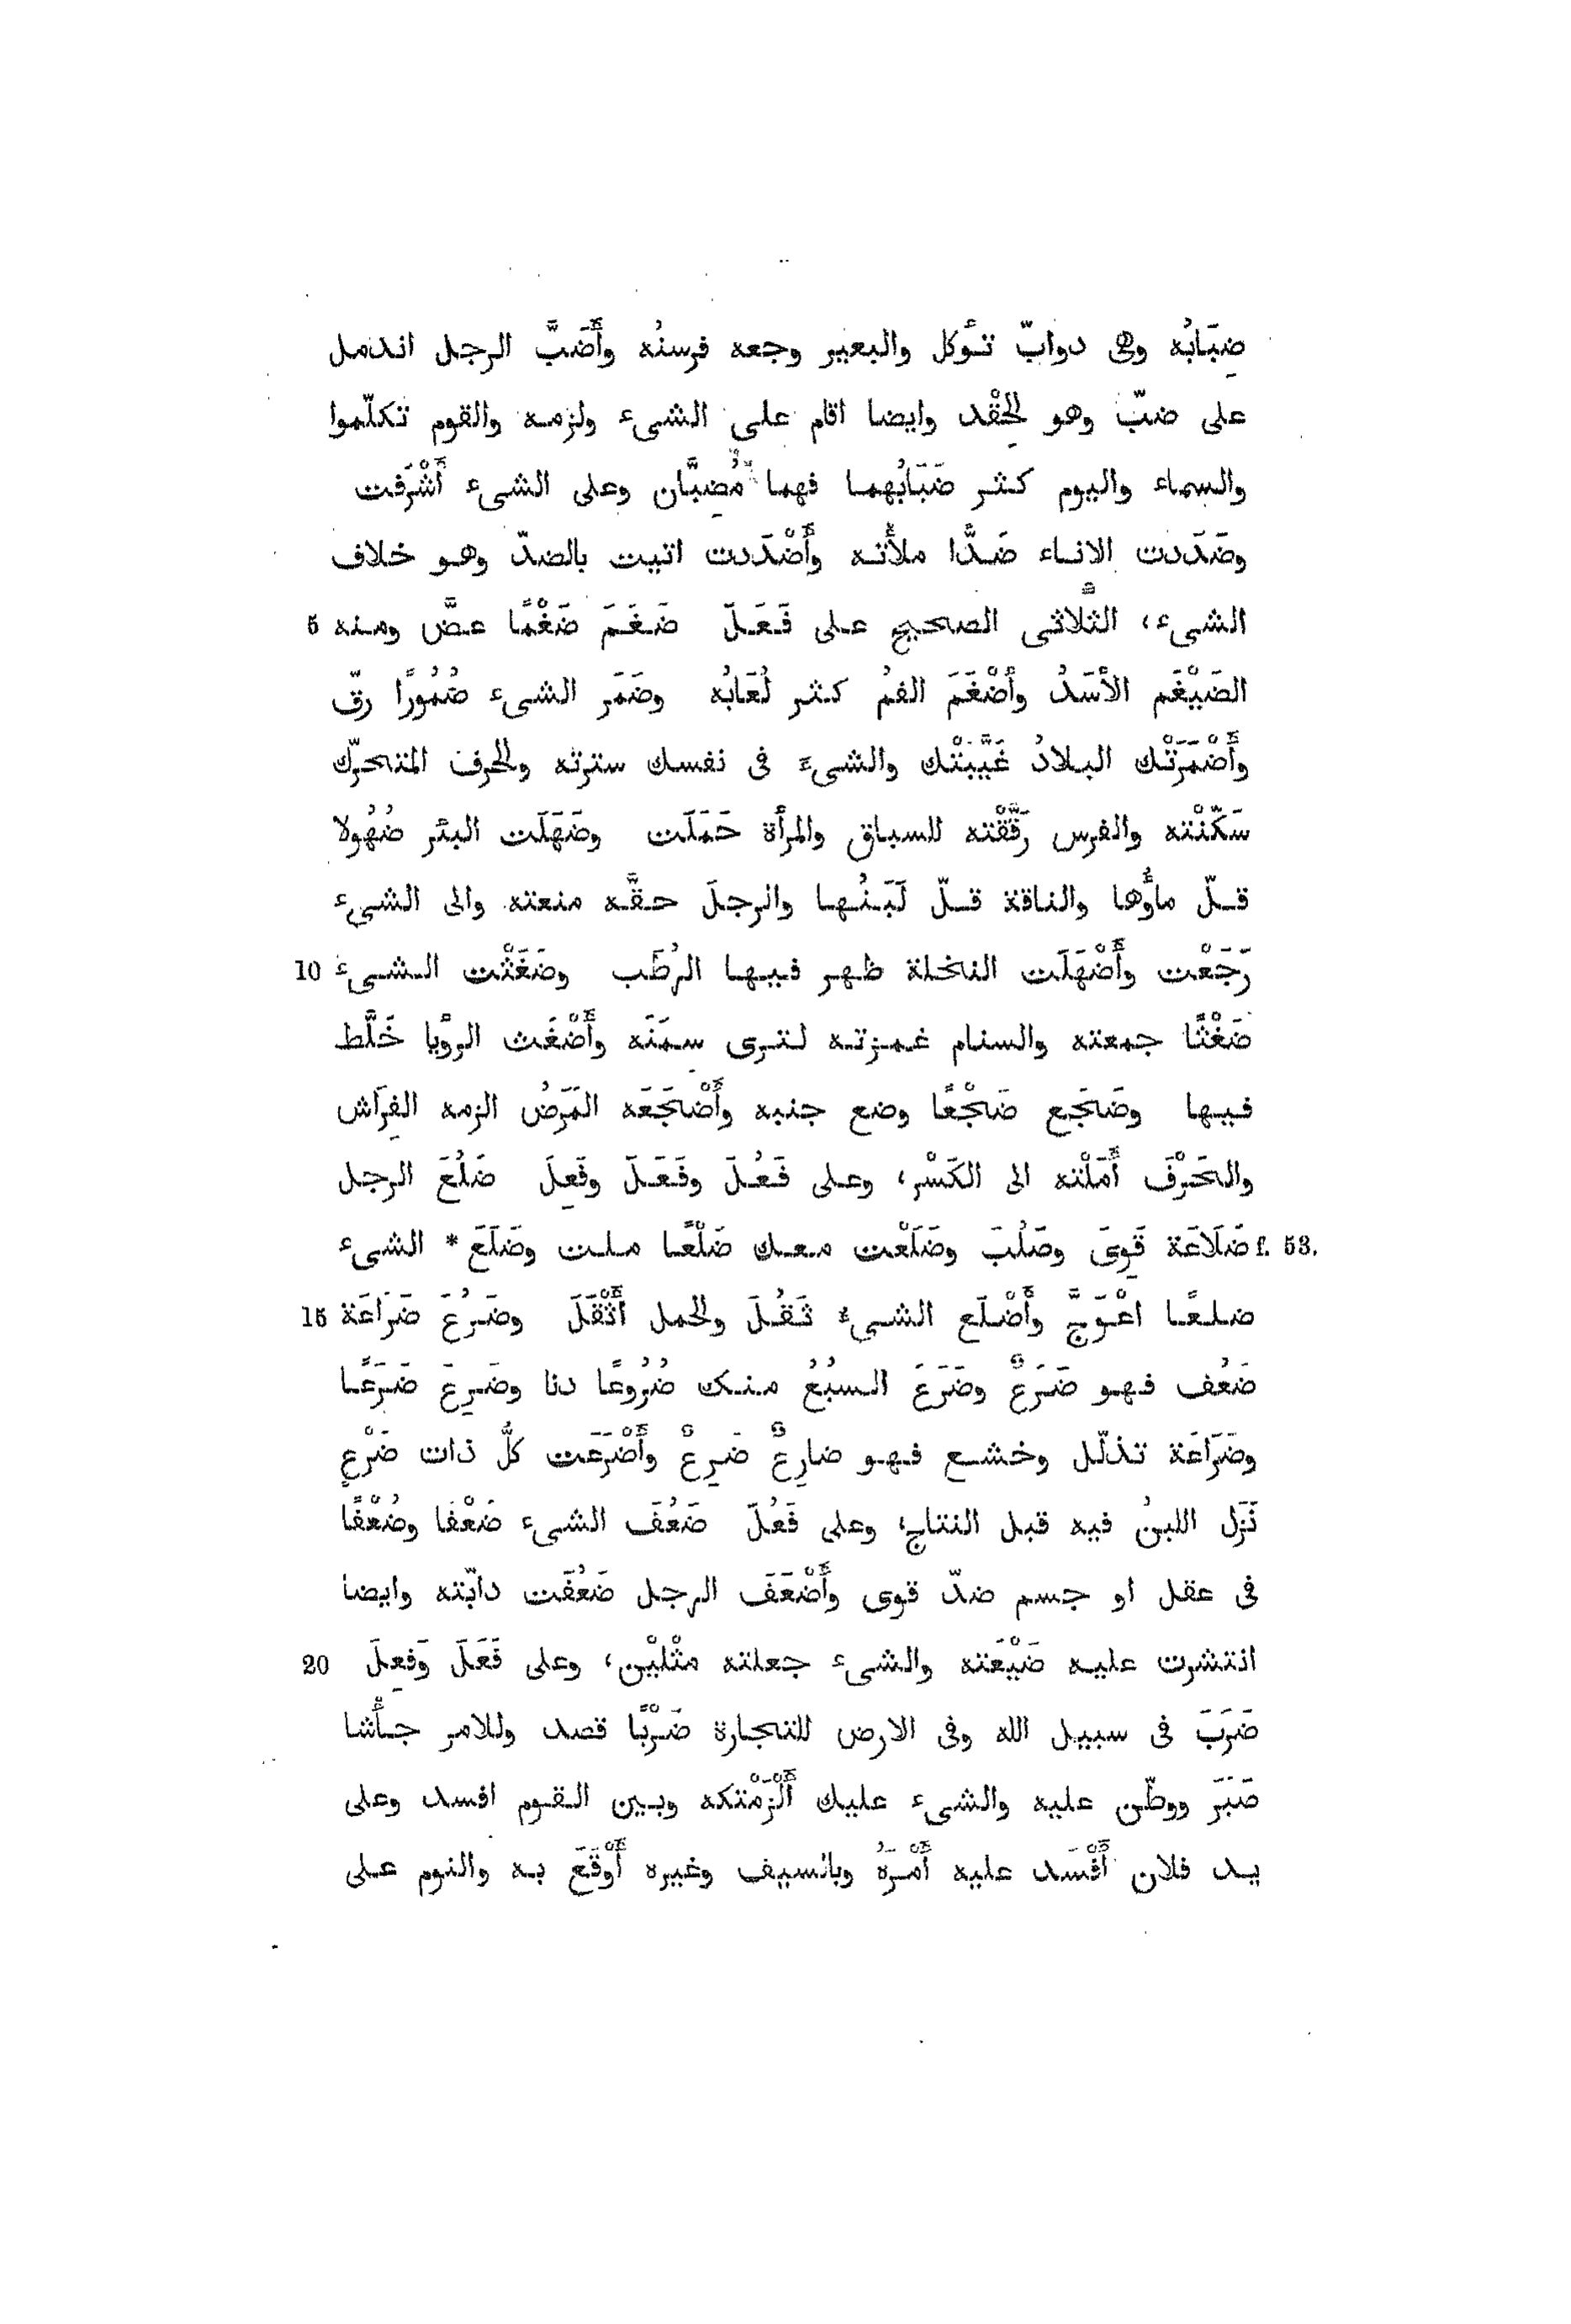 ضِبَابُه وهى دوابّ تُؤكل والبعير وجعه فرسنُه وأَضَبَّ الرجل اندمل
على ضبّ وهو الحِقْد وايضا اقام على الشىء ولزمه والقوم تكلّموا
والسماء واليوم كثر ضَبَابُهما فهما مُضِبَّان وعلى الشىء أَشْرَفت
وضَدَدت الاناء ضَدًّا ملأْته وأَضْدَدت اتيت بالضدّ وهو خلاف
الشىء، الثّلاثى الصحيح على فَعَلَ ضَغَمَ ضَغْمًا عضَّ ومنه 5
الضَيْغَم الأَسَدُ وأَضْغَمَ الفمُ كثر لُعَابُه وضَمَر الشىء ضُمُورًا رقّ
وأَضْمَرَتْك البلادُ غَيَّبَتْك والشىءَ فى نفسك سترته والحرف المتحرّك
سَكّنْته والفرس رَقَّقْته للسباق والمرأة حَمَلَت وضَهَلَت البئر ضُهُولا
قلّ ماؤُها والناقة قلّ لَبَنُها والرجلَ حقَّه منعته والى الشىء
رَجَعْت وأَضْهَلَت النخلة ظهر فيها الرُطَب وضَغَثْت الشىء 10
ضَغْثًا جمعته والسنام غمزته لترى سِمَنَه وأَضْغَث الرؤْيا خَلَّط
فيها وضَجَع ضَجْعًا وضع جنبه وأَضْجَعَه المَرَضُ الزمه الفِرَاش
والحَرْفَ أَمَلْته الى الكَسْر، وعلى فَعُلَ وفَعَلَ وفَعِلَ ضَلُعَ الرجل
f. 53. ضَلَاعَة قَوِىَ وصَلُبَ وضَلَعْت معك ضَلْعًا ملت وضَلَعَ * الشىء
ضلعًا اعْوَجَّ وأَضْلَع الشىءُ ثَقُلَ والحمل أَثْقَلَ وضَرُعَ ضَرَاعَة 15
ضَعُف فهو ضَرَعٌ وضَرَعَ السبُعُ منك ضُرُوعًا دنا وضَرِعَ ضَرَعًا
وضَرَاعَة تذلّل وخشع فهو ضارِعٌ ضَرِعٌ وأَضْرَعَت كلُّ ذات ضَرْعٍ
نَزَل اللبنُ فيه قبل النتاج، وعلى فَعُلَ ضَعُفَ الشىء ضَعْفا وضُعْفًا
فى عقل او جسم ضدّ قوى وأَضْعَفَ الرجل ضَعُفَت دابّته وايضا
انتشرت عليه ضَيْعَته والشىء جعلته مثْلَيْن، وعلى فَعَلَ وَفَعِلَ 20
ضَرَبَ فى سبيل الله وفى الارض للتجارة ضَرْبًا قصد وللامر جأْشا
صَبَرَ ووطّن عليه والشىء عليك أَلْزَمْتكه وبين القوم افسد وعلى
يد فلان أَفْسَد عليه أَمْرَهُ وبالسيف وغيره أَوْقَعَ به والنوم على